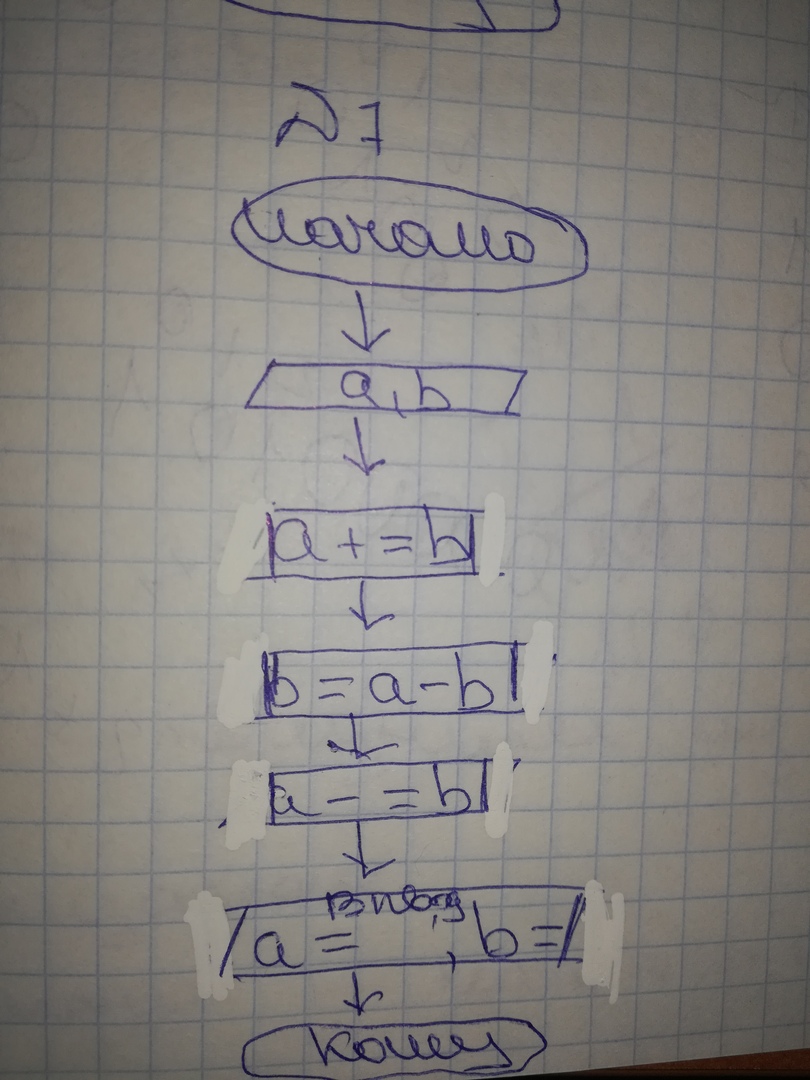 №1
начало
a, b
a += b
b = a - b
a -= b
вывод
a = , b =
конец